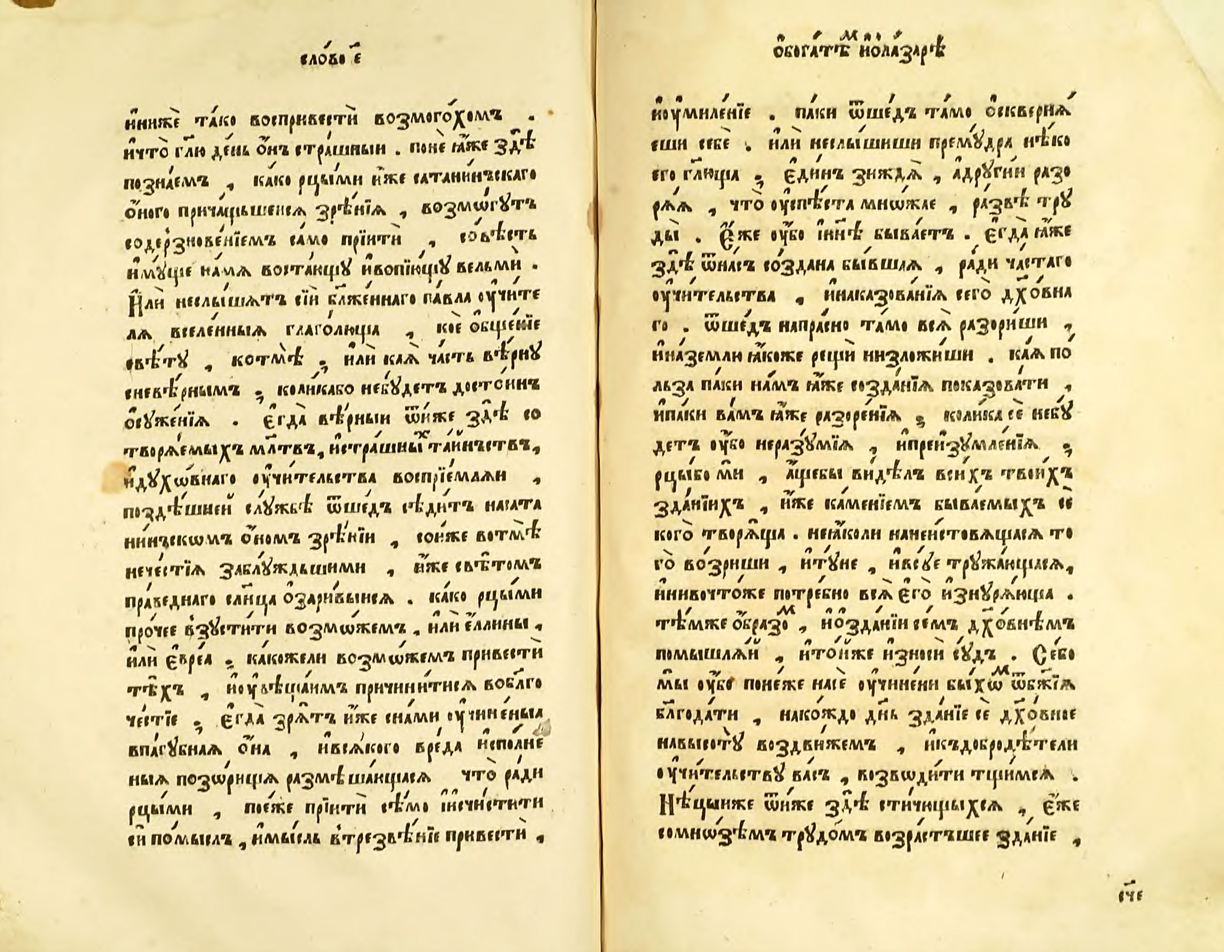 сло́во є҃
и҆нижѐ та́ко воспривестѝ возмого́хомъ .
и҆что̀ гл҃ю де́нь ѻ҆́нъ стра́шныи . поне ꙗ҆́же здѣ̀
позна́емъ , ка́ко рцы́ми и҆́же сатани́нъскаго
ѻ҆́ного прича́щьшеисѧ зрѣ́нїѧ , возмѡ́гутъ
содерзнове́нїемъ са́мо прїитѝ , со́вѣсть
и҆мꙋ́ще на́мѧ востаю́щꙋ и҆вопїю́щꙋ вельмѝ .
И҆лѝ неслы́шѧтъ сїѝ бл҃же́ннаго па́вла оу҆чите
лѧ вселе́нныѧ глаго́люща , ко́е ѻ҆бще́нїе
свѣ́тꙋ , котмѣ̀ ; и҆лѝ ка́ѧ ча́сть вѣ́рнꙋ
сневѣ́рнымъ ; коли́кабо небꙋ́детъ досто́инъ
ѻ҆сꙋже́нїѧ . Є҆гда̀ вѣ́рныи ѿи҆́же здѣ̀ со
творѧ́емыхъ мл҃твъ , и҆стра́шныⷯ та́инъствъ ,
и҆дꙋхѡ́внаго оу҆чи́тельства воспрїе́млѧи ,
позд̾ѣ́шней слꙋ́жбѣ ѿше́дъ сѣди́тъ насата
ни́нъскомъ ѻ҆́номъ зрѣ́нїи , сои҆́же вотмѣ̀
нече́стїѧ заблꙋ́ждьшими , и҆́же свѣ́томъ
пра́веднаго сл҃нца ѻ҆зари́выисѧ . ка́ко рцы́ми
про́чее в̾зꙋсти́ти возмо́жемъ , и҆лѝ е҆́ллины ,
и҆лѝ є҆вре́а ; ка́кожели возмо́жемъ привестѝ
тѣ́хъ , и҆оу҆вѣща́имъ причини́тисѧ вобл҃го
че́стїе ; Є҆гда̀ зрѧ́тъ и҆́же сна́ми оу҆чине́ныѧ
впа́гꙋбнаѧ ѻ҆́на , и҆всѧ́кого вре́да и҆спо́лне
ныѧ позо́рищѧ размѣша́ющасѧ что̀ ра́ди
рцы́ми , посѐже прїитѝ сѣ́мо и҆и҆счи́стити
си по́мыслъ , и҆мы́сль в̾трезвѣ́нїе привестѝ ,
ѻ҆бога́тѣⷨ и҆ѻла́зарѣ
и҆оу҆миле́нїе . па́ки ѿше́дъ та́мо ѻ҆сквернѧ́
еши себѐ . и҆лѝ неслы́шиши премꙋ́дра нѣ́ко
его гл҃юща ; є҆ди́нъ зи́ждѧ , а҆дрꙋгі́и разо
рѧ́ѧ , что̀ оу҆спѣ́ста мно́жае , ра́звѣ трꙋ
ды̀ . Є҆́же оу҆́бо и҆ни́нѣ быва́етъ . є҆гда̀ ꙗ҆́же
здѣ̀ ѿна́съ со́здана бы́вшаѧ , ра́ди ча́стаго
оу҆чи́тельства , и҆наказова́нїѧ сего̀ дх҃о́вна
го . ѿше́дъ напра́сно та́мо всѧ̀ разори́ши ,
и҆на́земли ꙗ҆́коже рещѝ низложи́ши . ка́ѧ по́
льза па́ки на́мъ ꙗ҆́же созда́нїѧ показова́ти ,
и҆па́ки ва́мъ ꙗ҆́же разоре́нїѧ ; коли́ка сѐ небꙋ́
детъ оу҆́бо неразꙋ́мїѧ , и҆преизꙋмле́нїѧ ;
рцы́бо мѝ , а҆́щебы ви́дѣлъ вси́хъ твои́хъ
зда́нїихъ , и҆́же ка́менїемъ быва́емыхъ сѐ
ко́го творѧ́ща . неꙗ҆́коли нанеи́стовѧщасѧ то
го̀ во́зриши , и҆тꙋ́не , и҆всꙋ́е трꙋжа́ющасѧ ,
и҆нивочто́же потре́бно всѧ̀ є҆го̀ и҆знꙋрѧ́юща .
тѣ́мже ѻ҆́бразоⷨ , и҆ѻзда́нїи се́мъ дх҃о́внѣмъ
помышлѧ́й , и҆то́и҆же и҆зно́си сꙋ́дъ . Се́бо
мы̀ оу҆́бо поне́же насѐ оу҆чине́ни бы́хѡⷨ ѿбж҃їѧ
бл҃года́ти , нако́ждо дн҃ь зда́нїе сѐ дх҃о́вное
навысотꙋ̀ воздви́жемъ , и҆къдобродѣ́тели
оу҆чи́тельствꙋ ва́съ , возводи́ти тщи́мсѧ .
Нѣ́цыиже ѿи҆́же здѣ̀ стичю́щыхсѧ , є҆́же
сомно́зѣмъ трꙋдо́мъ возра́стъшее зда́нїе ,
сч҃е